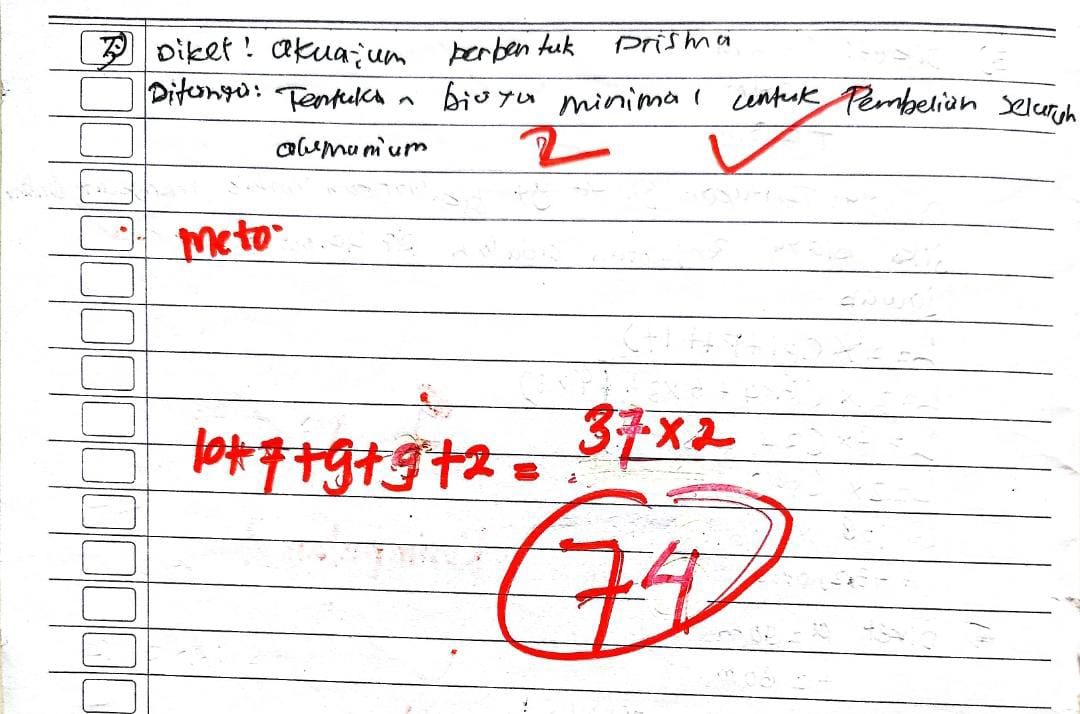 3) Diket! akuarium berbentuk Prisma
Ditanya: Tentukan biaya minimal untuk Pembelian seluruh
alumunium 2
Meto
10+7+9+9+2 = 37 x 2
74